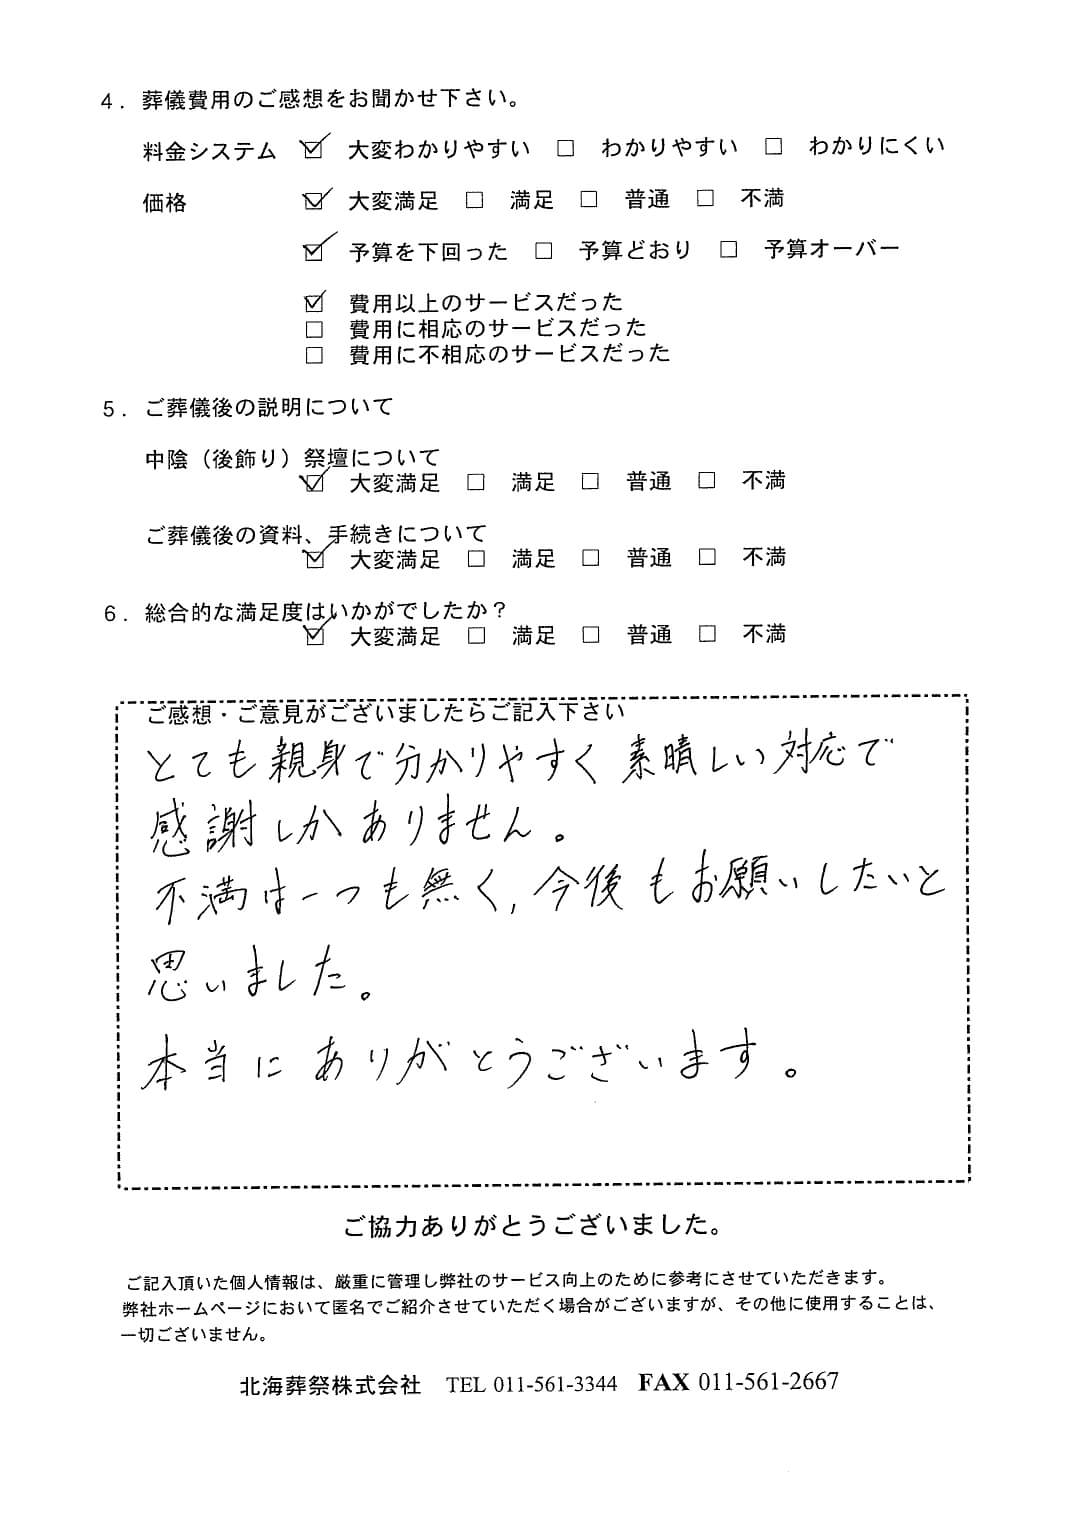 4．葬儀費用のご感想をお聞かせ下さい。
料金システム ☑ 大変わかりやすい □ わかりやすい □ わかりにくい
価格 ☑ 大変満足 □ 満足 □ 普通 □ 不満
☑ 予算を下回った □ 予算どおり □ 予算オーバー
☑ 費用以上のサービスだった
□ 費用に相応のサービスだった
□ 費用に不相応のサービスだった
5．ご葬儀後の説明について
中陰（後飾り）祭壇について
☑ 大変満足 □ 満足 □ 普通 □ 不満
ご葬儀後の資料、手続きについて
☑ 大変満足 □ 満足 □ 普通 □ 不満
6．総合的な満足度はいかがでしたか？
☑ 大変満足 □ 満足 □ 普通 □ 不満
ご感想・ご意見がございましたらご記入下さい
とても親身で分かりやすく素晴しい対応で
感謝しかありません。
不満は一つも無く,今後もお願いしたいと
思いました。
本当にありがとうございます。
ご協力ありがとうございました。
ご記入頂いた個人情報は、厳重に管理し弊社のサービス向上のために参考にさせていただきます。
弊社ホームページにおいて匿名でご紹介させていただく場合がございますが、その他に使用することは、
一切ございません。
北海葬祭株式会社 TEL 011-561-3344 FAX 011-561-2667